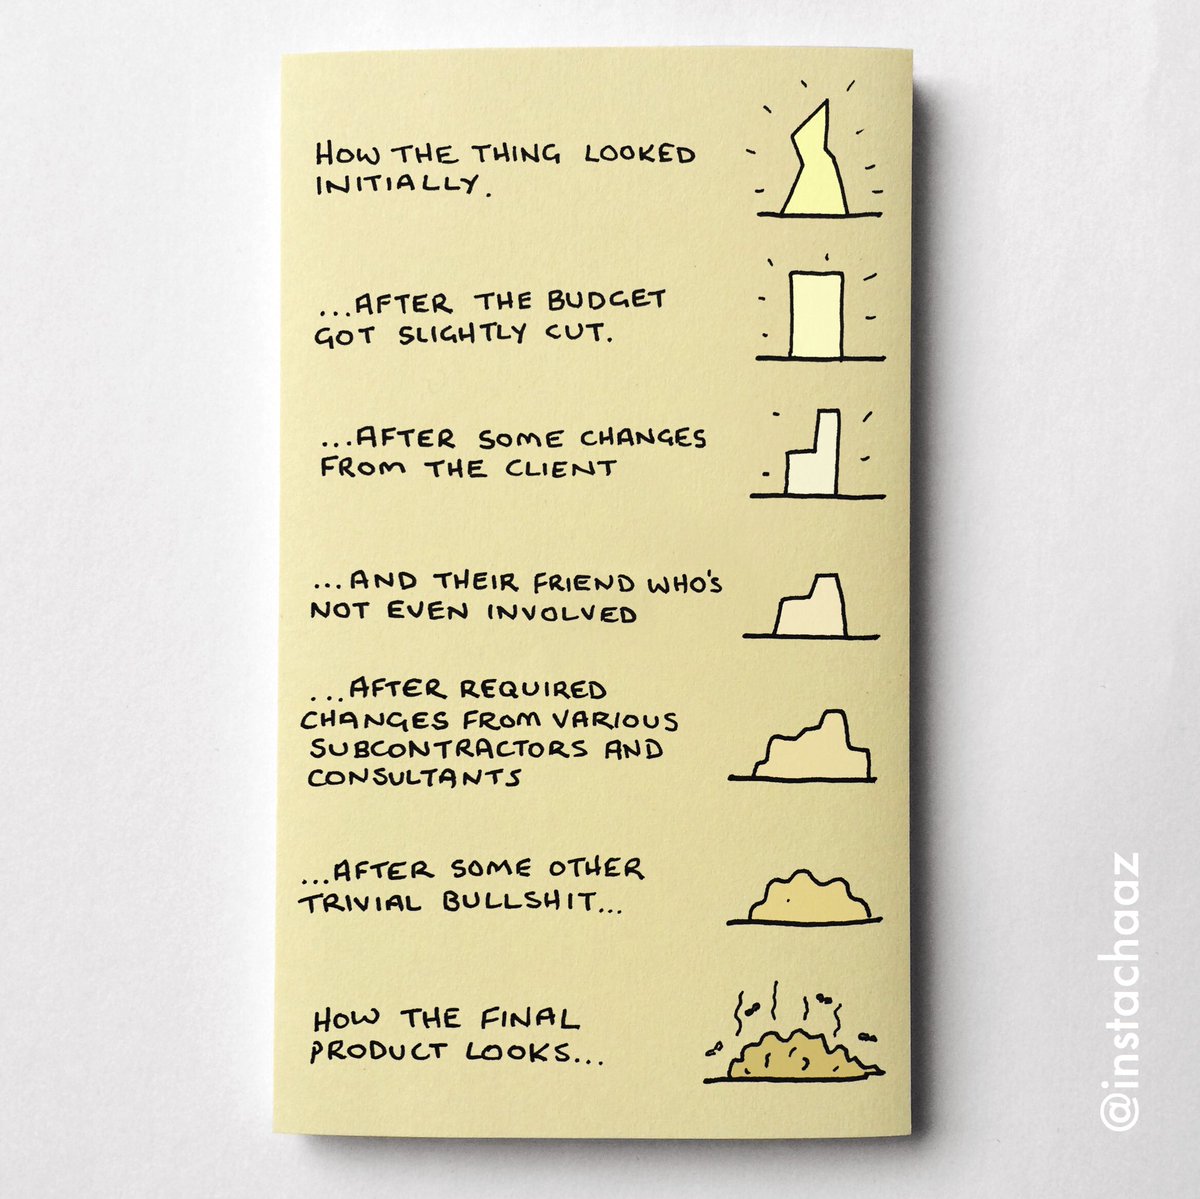 HOW THE THING LOOKED
INITIALLY.
...AFTER THE BUDGET
GOT SLIGHTLY CUT.
...AFTER SOME CHANGES
FROM THE CLIENT
...AND THEIR FRIEND WHO'S
NOT EVEN INVOLVED
...AFTER REQUIRED
CHANGES FROM VARIOUS
SUBCONTRACTORS AND
CONSULTANTS
...AFTER SOME OTHER
TRIVIAL BULLSHIT...
HOW THE FINAL
PRODUCT LOOKS...
@instachaaz